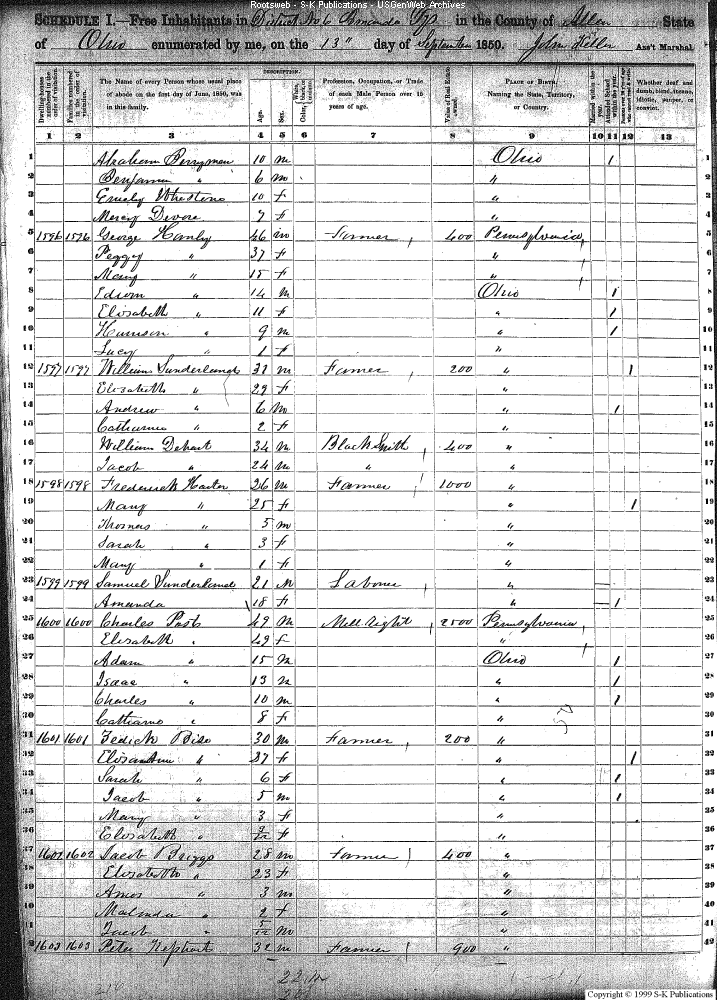 Rootsweb - S-K Publications - USGenWeb Archives
SCHEDULE I.—Free Inhabitants in District No 6 Amanda Twp in the County of Allen State
of Ohio enumerated by me, on the 13" day of September 1850. John Keller Ass't Marshal.
Dwelling-houses numbered in the order of visitation.
Families numbered in the order of visitation.
The Name of every Person whose usual place of abode on the first day of June, 1850, was in this family.
DESCRIPTION.
Age.
Sex.
Color, White, black, or mulatto.
Profession, Occupation, or Trade of each Male Person over 15 years of age.
Value of Real Estate owned.
PLACE OF BIRTH, Naming the State, Territory, or Country.
Married within the year.
Attended School within the year.
Whether deaf and dumb, blind, insane, idiotic, pauper, or convict.
1 2 3 4 5 6 7 8 9 10 11 12 13
1 Abraham Perryman 10 m Ohio 1 1
2 Benjamin " 6 m " 2
3 Emely Whestone 10 f " 3
4 Mercy Devore 7 f " 4
5 1596 1596 George Hanly 46 m Farmer 400 Pennsylvania 5
6 Peggy " 37 f " 6
7 Mary " 15 f " 7
8 Edwin " 14 m Ohio 1 8
9 Elisabeth " 11 f " 1 9
10 Harrison " 9 m " 1 10
11 Lucy " 1 f " 11
12 1597 1597 William Sunderland 31 m Farmer 200 " 1 12
13 Elisabeth " 29 f " 13
14 Andrew " 6 m " 1 14
15 Catharine " 2 f " 15
16 William Dehart 34 m Black Smith 400 " 16
17 Jacob " 24 m " " 17
18 1598 1598 Frederick Harter 26 m Farmer 1000 " 18
19 Mary " 25 f " 1 19
20 Thomas " 5 m " 20
21 Sarah " 3 f " 21
22 Mary " 1 f " 22
23 1599 1599 Samuel Sunderland 21 M Laborer " 23
24 Amanda 18 f " 1 24
25 1600 1600 Charles Post 49 M Mill Right 2500 Pennsylvania 25
26 Elisabeth " 49 f " 26
27 Adam " 15 m Ohio 1 27
28 Isaac " 13 m " 1 28
29 Charles " 10 m " 1 29
30 " 8 f " 30
31 1601 1601 30 m Farmer 200 " 31
32 " 27 f " 1 32
33 Sarah " 6 f " 1 33
34 Jacob " 5 m " 1 34
35 Mary " 3 f " 35
36 Elisabeth " f " 36
37 1602 1602 Jacob Briggs 28 m Farmer 400 " 37
38 Elisabeth " 23 f " 38
39 Amos " 3 m " 39
40 Malinda " 2 f " 40
41 Jacob " m " 41
42 1603 1603 Peter Nephart 32 m Farmer 900 " 42
Copyright © 1999 S-K Publications